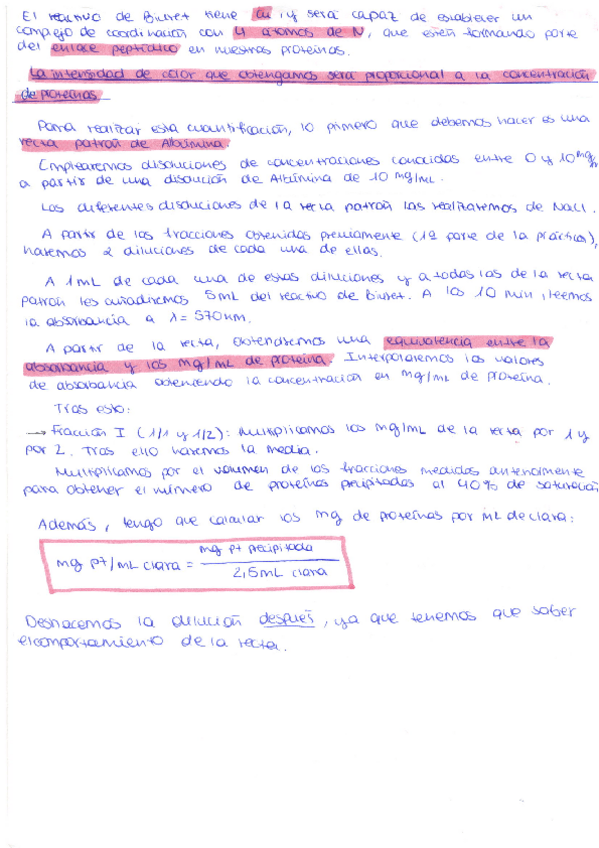 El reactivo de Biuret tiene Cu, y será capaz de establecer un
complejo de coordinación con 4 átomos de N, que estén formando parte
del enlace peptídico en nuestras proteínas.
La intensidad de color que obtengamos será proporcional a la concentración
de proteínas.
Para realizar esta cuantificación, lo primero que debemos hacer es una
recta patrón de Albúmina.
Emplearemos disoluciones de concentraciones conocidas entre 0 y 10 mg/
a partir de una disolución de Albúmina de 10 mg/mL.
Las diferentes disoluciones de la recta patrón las realizaremos de NaCl.
A partir de las fracciones obtenidas previamente (1ª parte de la práctica),
haremos 2 diluciones de cada una de ellas.
A 1mL de cada una de estas diluciones y a todas las de la recta
patrón les añadiremos 5mL del reactivo de Biuret. A los 10 min, leemos
la absorbancia a λ = 570nm.
A partir de la recta, obtendremos una equivalencia entre la
absorbancia y los mg/mL de proteína. Interpolaremos los valores
de absorbancia obteniendo la concentración en mg/mL de proteína.
Tras esto:
→ Fracción I (1/1 y 1/2): Multiplicamos los mg/mL de la recta por 1 y
por 2. Tras ello haremos la media.
Multiplicamos por el volumen de las fracciones medidas anteriormente
para obtener el número de proteínas precipitadas al 40% de saturación
Además, tengo que calcular los mg de proteínas por mL de clara:
mg pt/mL clara = mg pt precipitada / 2,5mL clara
Deshacemos la dilución después, ya que tenemos que saber
el comportamiento de la recta.